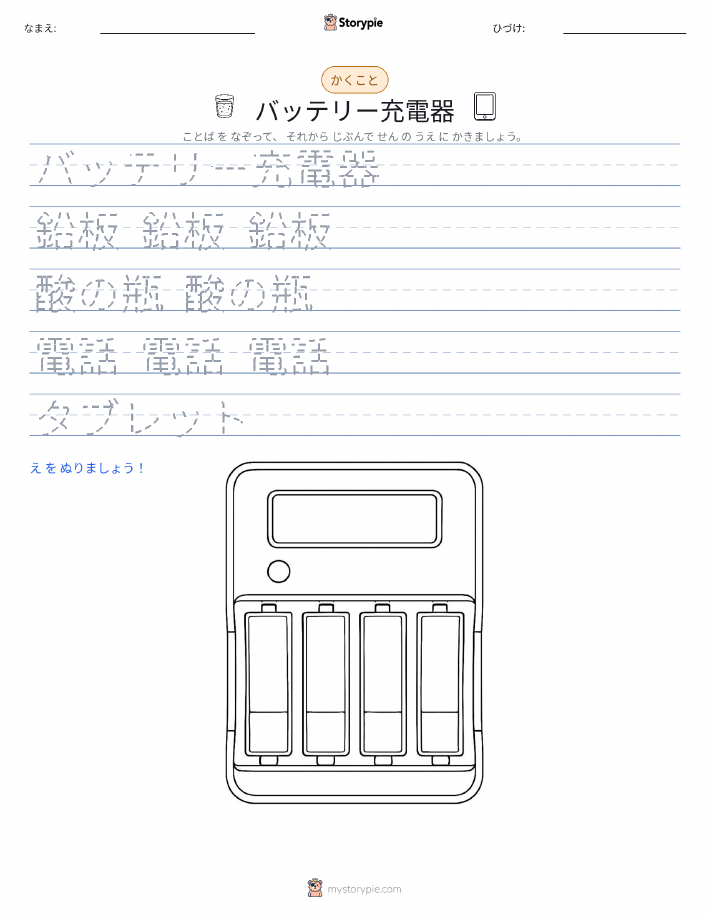 なまえ:
Storypie
ひづけ:
かくこと
バッテリー充電器
ことば を なぞって、 それから じぶんで せん の うえ に かきましょう。
バッテリー充電器
鉛板 鉛板 鉛板
酸の瓶 酸の瓶
電話 電話 電話
タブレット
え を ぬりましょう！
mystorypie.com